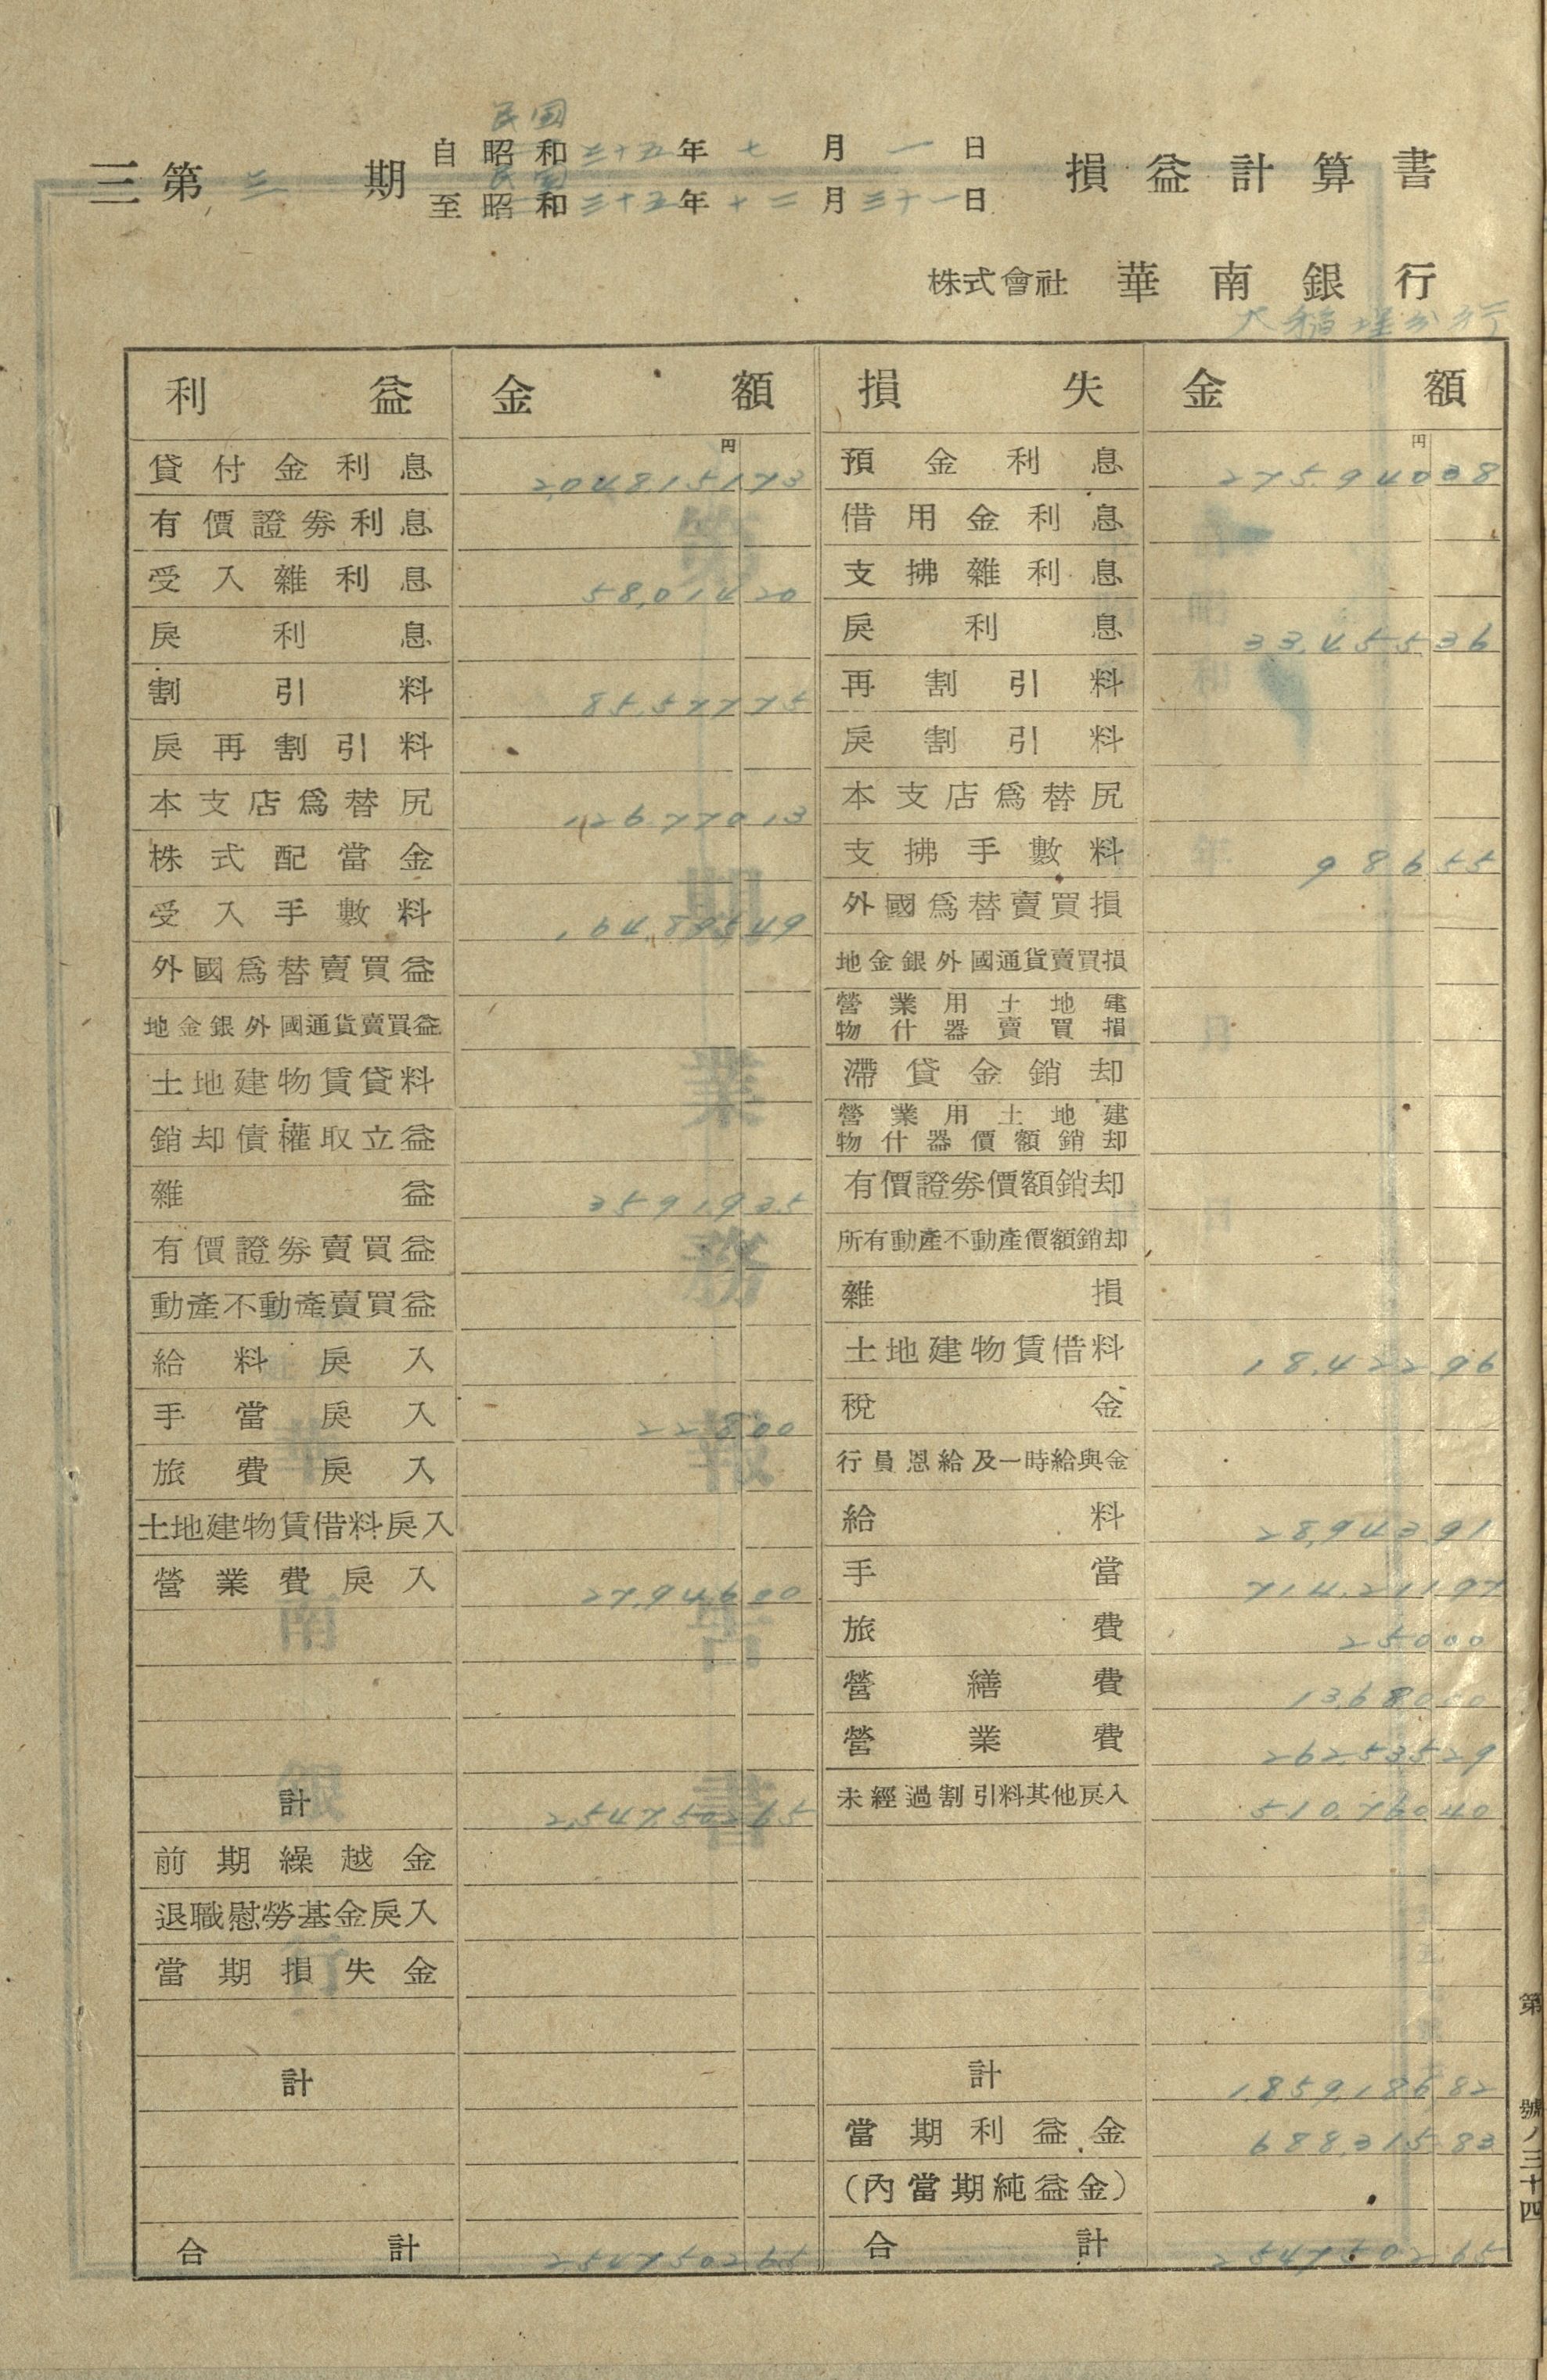 三第三期 自民国昭和三十五年七月一日 損益計算書
至民国昭和三十五年十二月三十一日
株式會社 華南銀行
大稻埕分行
利益 金額 損失 金額
貸付金利息 円 2,048,151 73 預金利息 円 275,940 38
有價證券利息 借用金利息
受入雜利息 58,014 20 支拂雜利息
戾利息 戾利息 33,455 36
割引料 85,577 75 再割引料
戾再割引料 戾割引料
本支店爲替尻 126,770 13 本支店爲替尻
株式配當金 支拂手數料 986 55
受入手數料 164,895 49 外國爲替賣買損
外國爲替賣買益 地金銀外國通貨賣買損
地金銀外國通貨賣買益 營業用土地建物什器賣買損
土地建物賃貸料 滯貸金銷却
銷却債權取立益 營業用土地建物什器價額銷却
雜益 35,919 35 有價證券價額銷却
有價證券賣買益 所有動產不動產價額銷却
動產不動產賣買益 雜損
給料戾入 土地建物賃借料 18,422 96
手當戾入 228 00 稅金
旅費戾入 行員恩給及一時給與金
土地建物賃借料戾入 給料 28,943 91
營業費戾入 27,946 00 手當 714,211 97
旅費 250 00
營繕費 13,680 00
營業費 262,535 29
計 2,547,502 65 未經過割引料其他戾入 510,760 40
前期繰越金
退職慰勞基金戾入
當期損失金
計 計 1,859,186 82
當期利益金 688,315 83
(內當期純益金)
合計 2,547,502 65 合計 2,547,502 65
第 號ノ三十四
第 期業務報告書
華南銀行